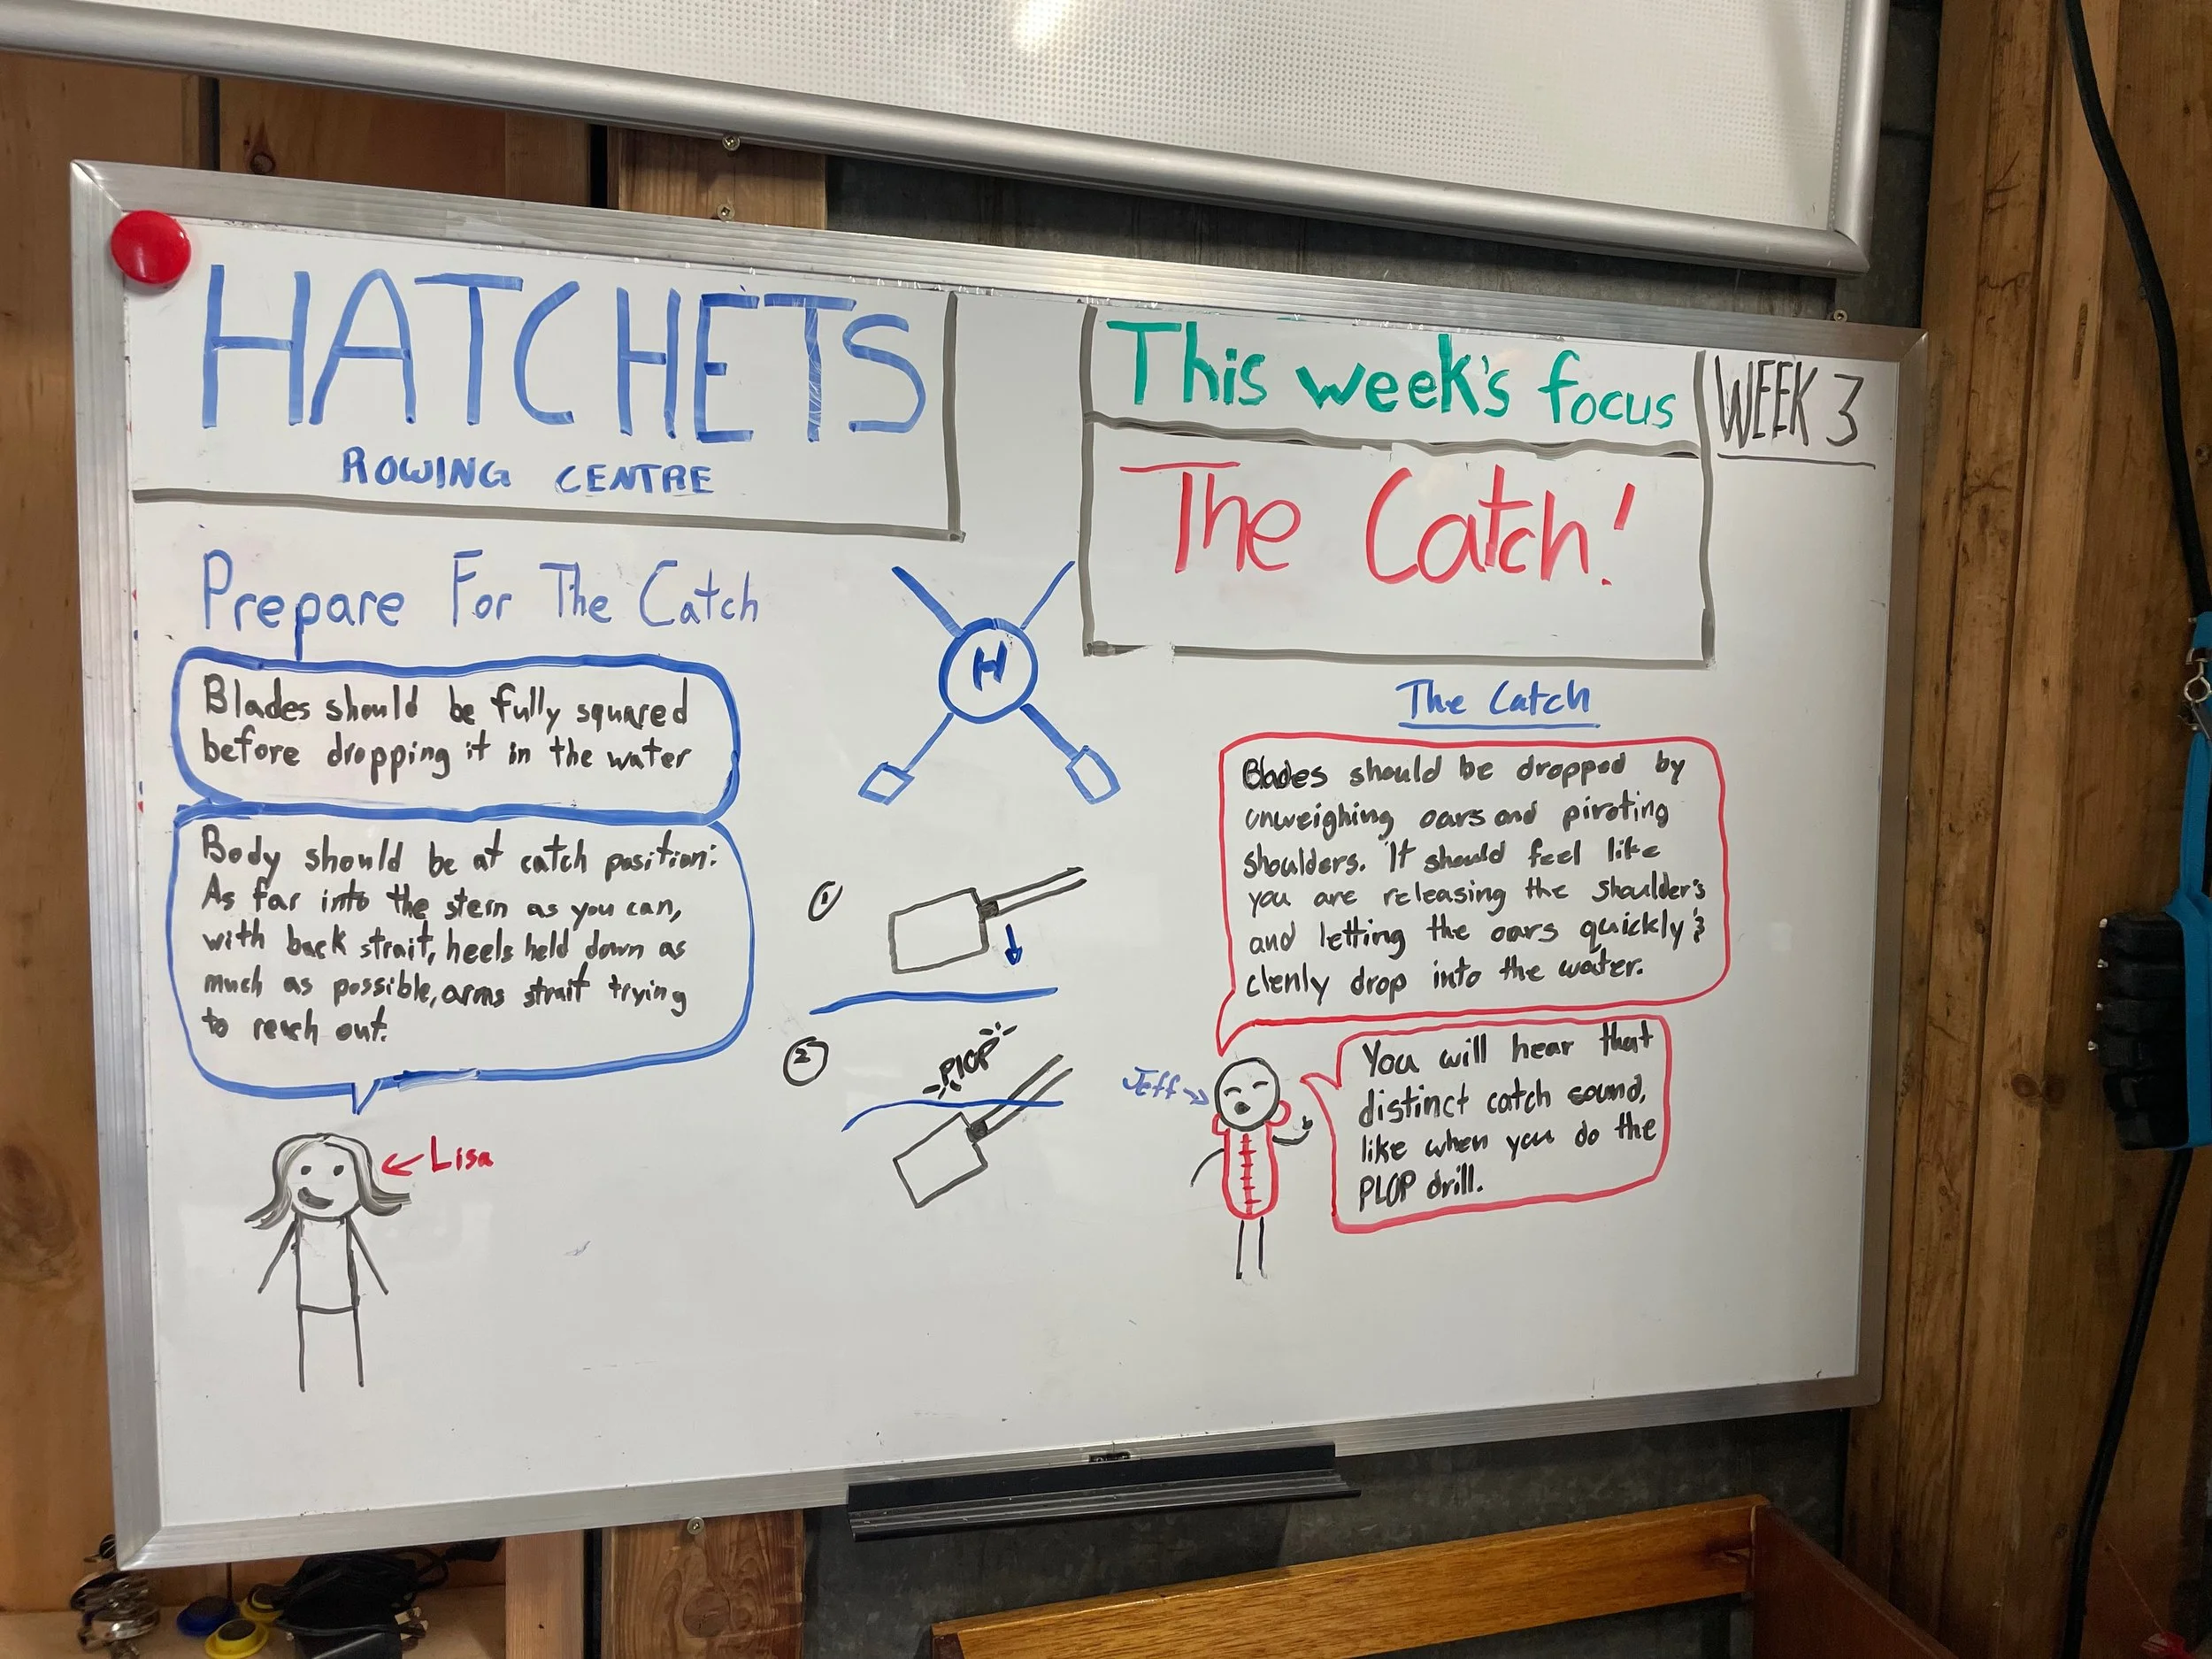 HATCHETS
ROWING CENTRE
This week's focus
WEEK 3
The Catch!
Prepare For The Catch
Blades should be fully squared
before dropping it in the water
Body should be at catch position:
As far into the stern as you can,
with back strait, heels held down as
much as possible, arms strait trying
to reach out.
Lisa
H
1
2
PLOP
The Catch
Blades should be dropped by
unweighing oars and piroting
shoulders. It should feel like
you are releasing the shoulder's
and letting the oars quickly &
clenly drop into the water.
Jeff
You will hear that
distinct catch sound,
like when you do the
PLOP drill.